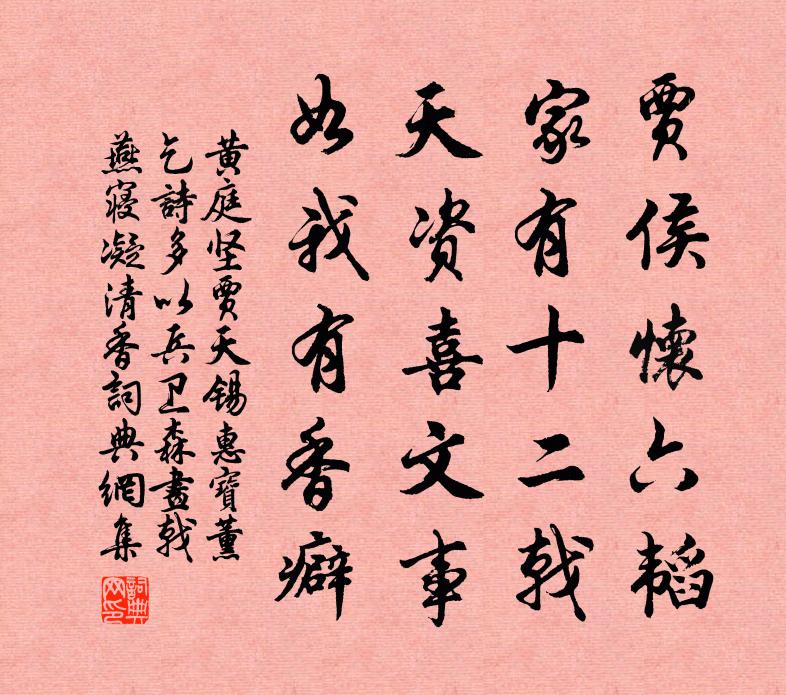 贾侯懷六韬
家有十二戟
天资喜文事
如我有香癖
黄庭坚贾天锡惠寶薰
乞詩多以兵卫森畫戟
燕寢凝清香詞典網集
詞典网印